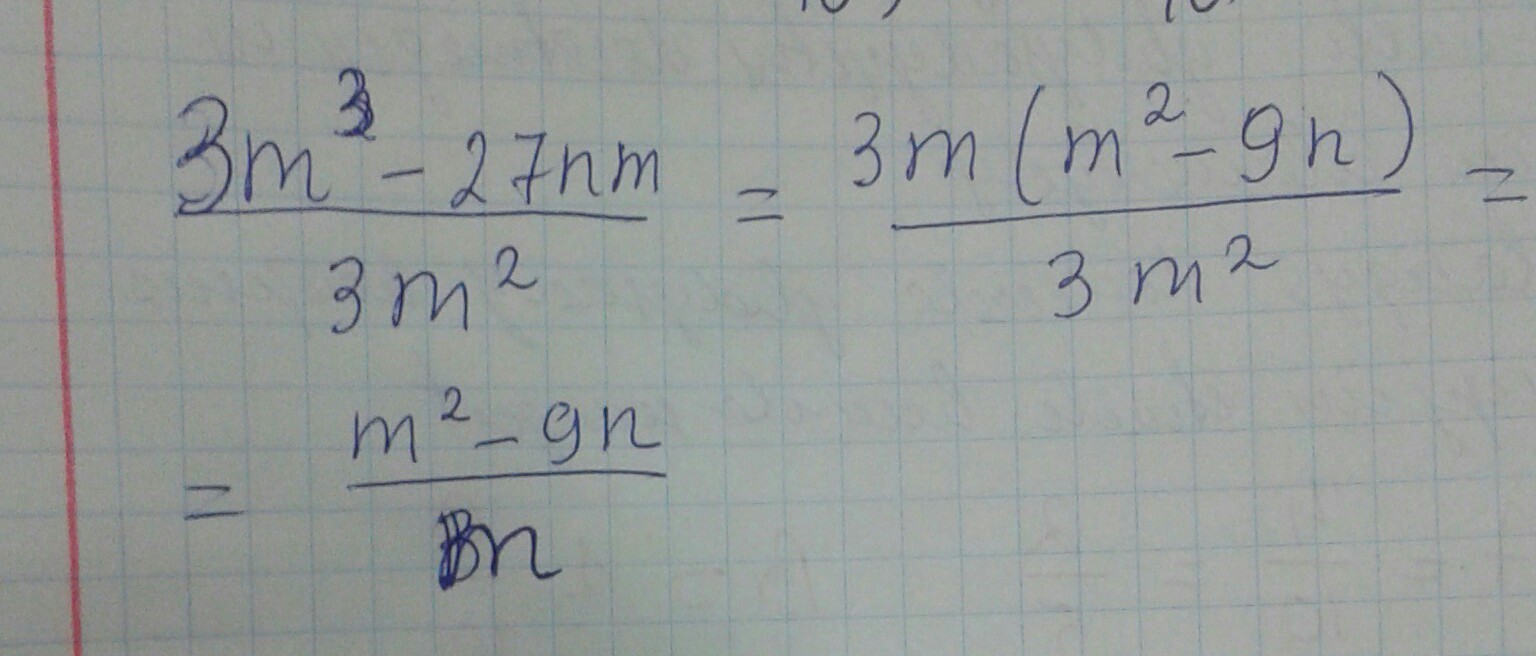 (3m³ - 27nm) / (3m²) = (3m(m² - 9n)) / (3m²) =
= (m² - 9n) / n